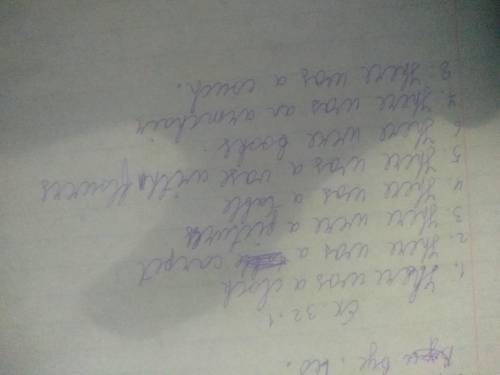 Ex. 32.1
1. There was a clock
2. There was a carpet
3. There were a pictures
4. There was a table
5. There was a vase with flowers
6. There were books.
7. There was an armchair
8. There was a couch.